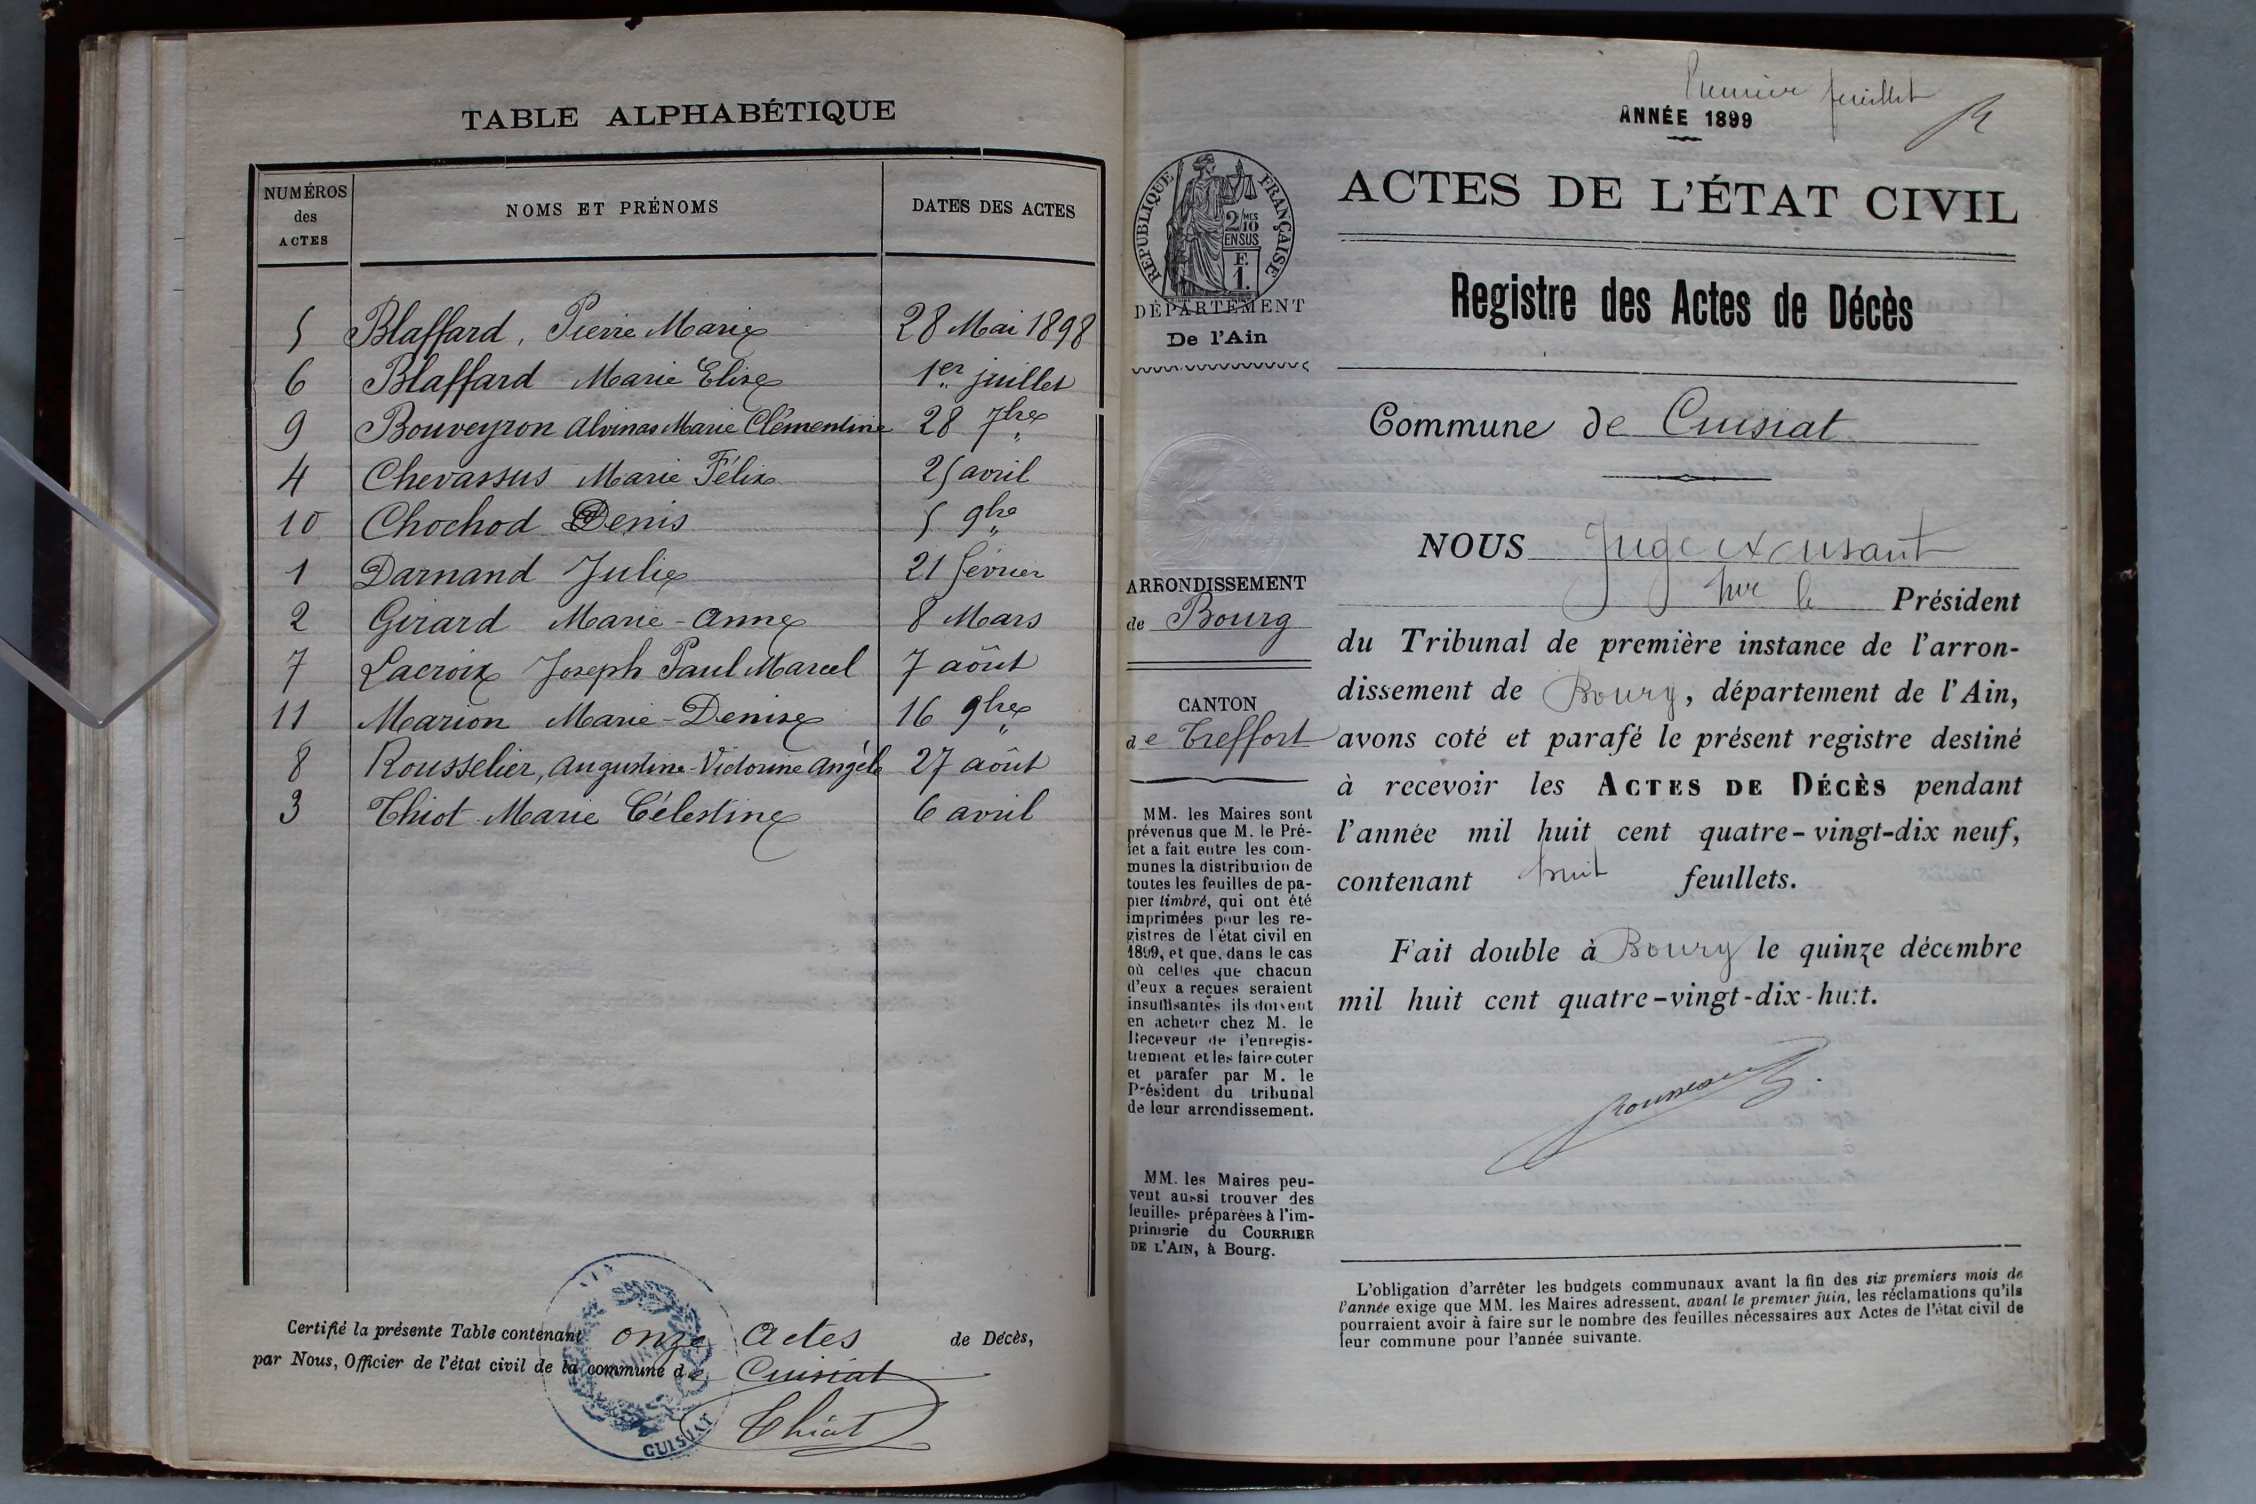 TABLE ALPHABÉTIQUE
NUMÉROS des ACTES NOMS ET PRÉNOMS DATES DES ACTES
5 Blaffard, Pierre Marie 28 Mai 1898
6 Blaffard Marie Elise 1er juillet
9 Bouveyron Alvinas Marie Clémentine 28 7bre
4 Chevassus Marie Félix 25 avril
10 Chochod Denis 5 9bre
1 Darnand Julie 21 février
2 Girard Marie-Anne 8 Mars
7 Lacroix Joseph Paul Marcel 7 août
11 Marion Marie-Denise 16 9bre
8 Rousselier, Augustine-Victorine Angèle 27 août
3 Thiot Marie Célestine 6 avril
Certifié la présente Table contenant onze Actes de Décès,
par Nous, Officier de l'état civil de la commune de Cuisiat
Thiot
AIN
MAIRIE
CUISIAT
Premier feuillet
ANNÉE 1899
RÉPUBLIQUE FRANÇAISE
2/10 MES
EN SUS
F.
1.
DÉPARTEMENT
De l'Ain
ARRONDISSEMENT
de Bourg
CANTON
de Treffort
MM. les Maires sont
prévenus que M. le Pré-
fet a fait entre les com-
munes la distribution de
toutes les feuilles de pa-
pier timbré, qui ont été
imprimées pour les re-
gistres de l'état civil en
1899, et que, dans le cas
où celles que chacun
d'eux a reçues seraient
insuffisantes ils doivent
en acheter chez M. le
Receveur de l'enregis-
trement et les faire coter
et parafer par M. le
Président du tribunal
de leur arrondissement.
MM. les Maires peu-
vent aussi trouver des
feuilles préparées à l'im-
primerie du COURRIER
DE L'AIN, à Bourg.
ACTES DE L'ÉTAT CIVIL
Registre des Actes de Décès
Commune de Cuisiat
NOUS Juge
le Président
du Tribunal de première instance de l'arron-
dissement de Bourg, département de l'Ain,
avons coté et parafé le présent registre destiné
à recevoir les ACTES DE DÉCÈS pendant
l'année mil huit cent quatre-vingt-dix neuf,
contenant huit feuillets.
Fait double à Bourg le quinze décembre
mil huit cent quatre-vingt-dix-huit.
L'obligation d'arrêter les budgets communaux avant la fin des six premiers mois de
l'année exige que MM. les Maires adressent, avant le premier juin, les réclamations qu'ils
pourraient avoir à faire sur le nombre des feuilles nécessaires aux Actes de l'état civil de
leur commune pour l'année suivante.